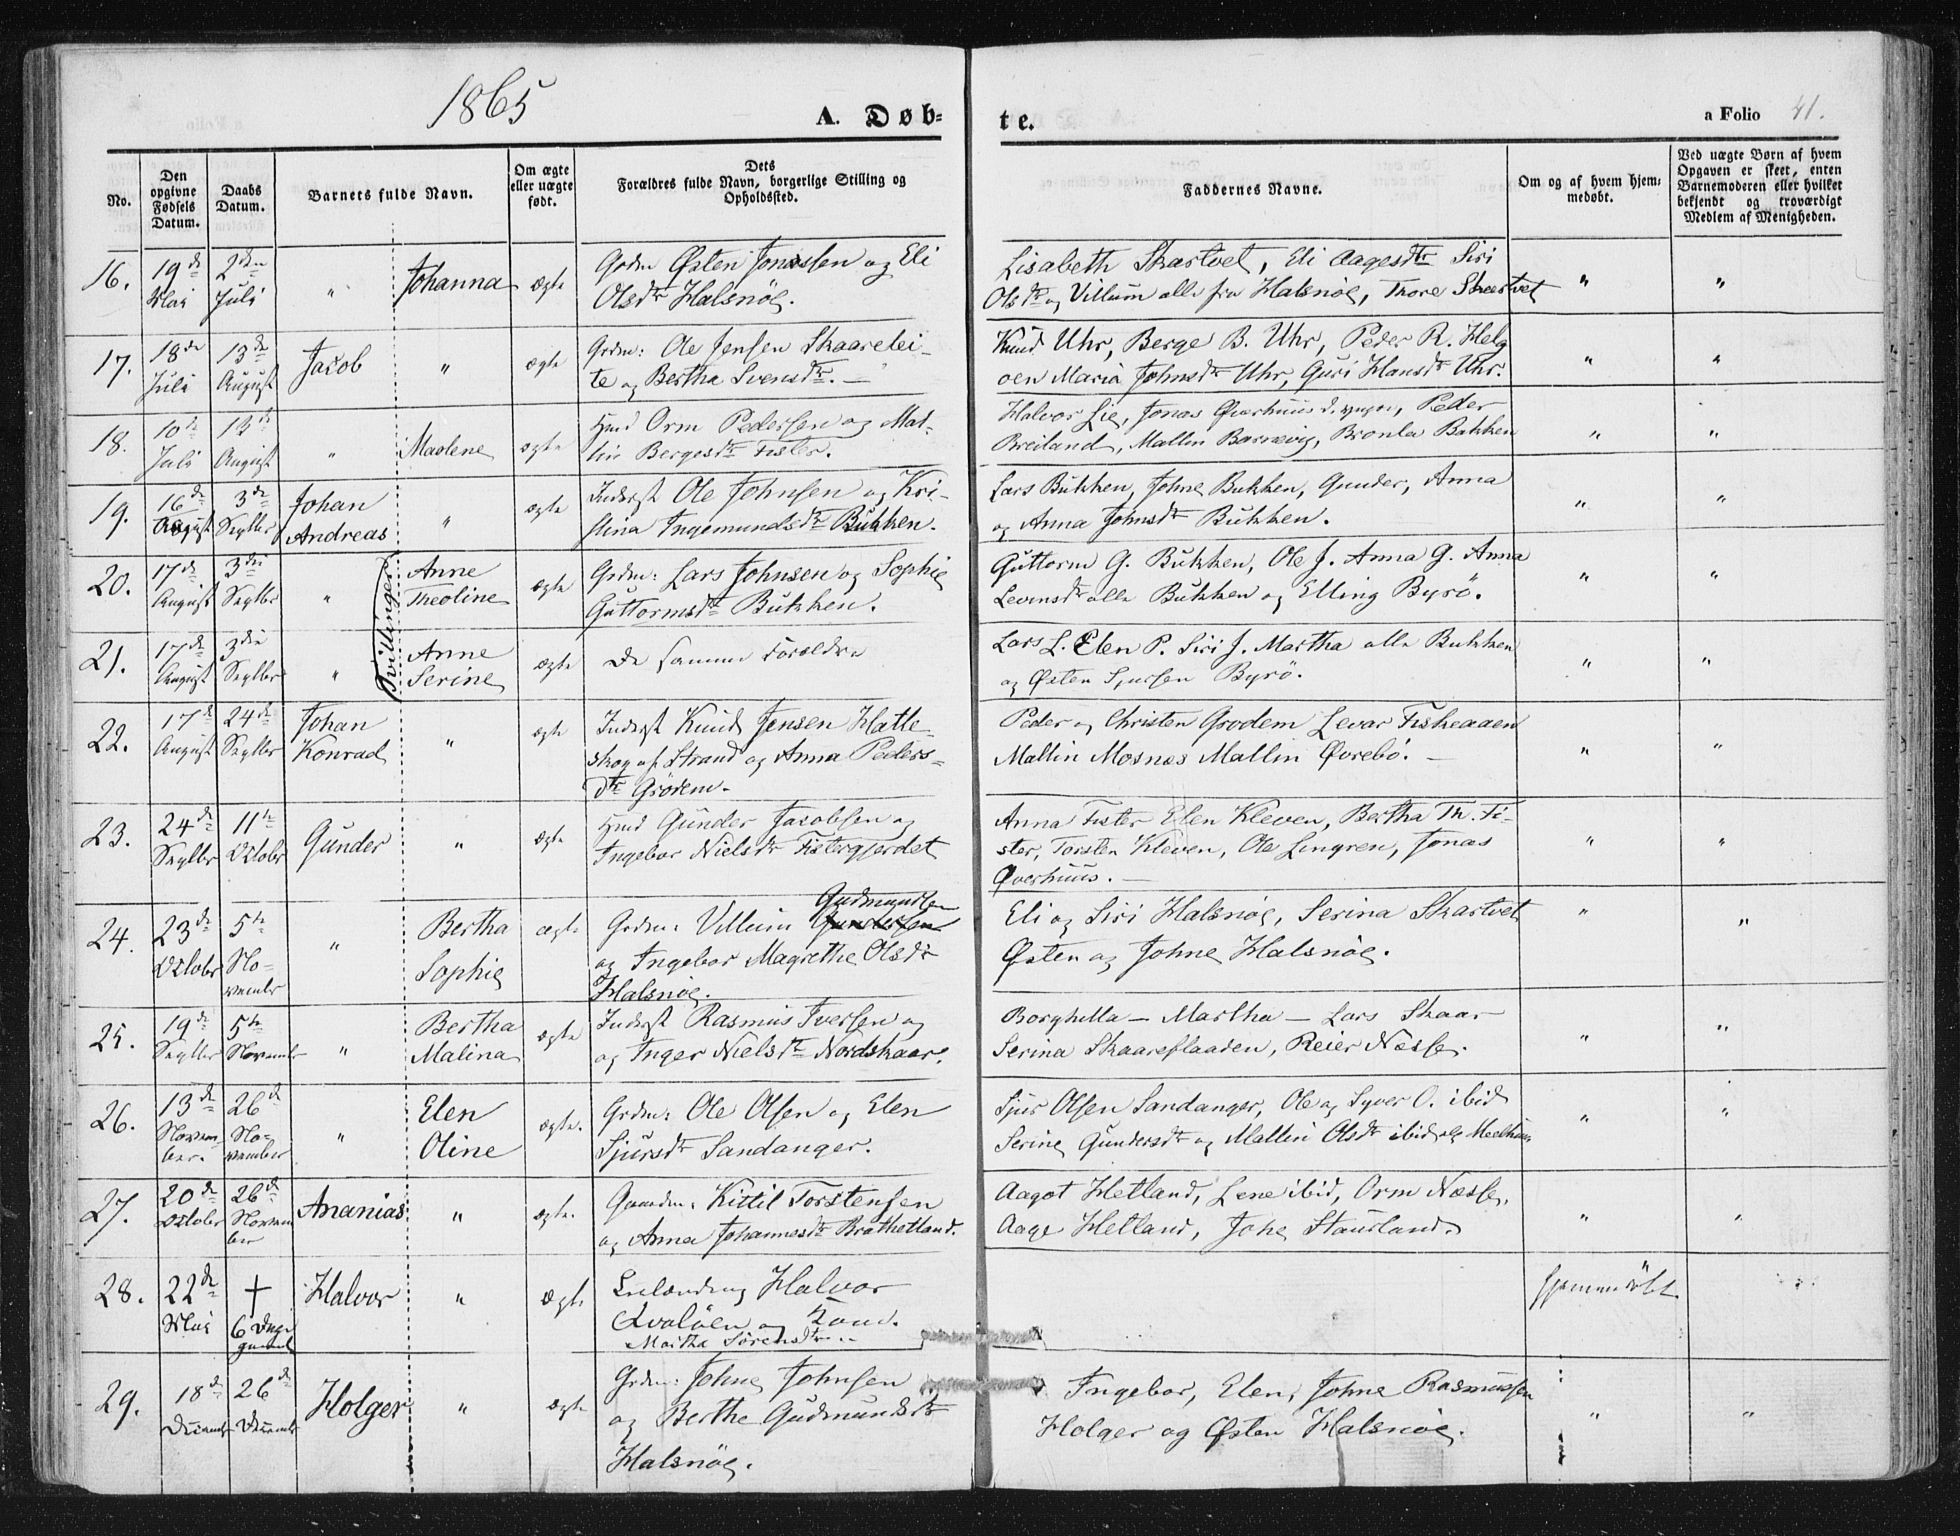 1865
A. Døb-
te.
a Folio 41.
No.
Den opgivne Fødsels Datum.
Daabs Datum.
Barnets fulde Navn.
Om ægte eller uægte født.
Dets Forældres fulde Navn, borgerlige Stilling og Opholdssted.
Faddernes Navne.
Om og af hvem hjemmedøbt.
Ved uægte Børn af hvem Opgaven er skeet, enten Barnemoderen eller hvilket bekjendt og troværdigt Medlem af Menigheden.
16. 19de Mai 2den Juli " Johanna ægte
Grdm Østen Jonassen og Eli
Olsdtr Halsnöe.
Lisabeth Skartvet, Eli Aagesdtr Siri
Olsdtr og Villum alle fra Halsnöe, Thore Skartvet " "
17. 18de Juli 13de August Jacob " ægte
Grdm: Ole Jensen Skaarelei-
te og Bertha Svensdtr. —
Knud Uhr, Berge B. Uhr, Peder R. Helg
öen Maria Johnsdtr Uhr, Guri Hansdtr Uhr. " "
18. 10de Juli 13de August " Maolene ægte
Hmd Orm Pedersen og Mal-
lin Bergesdtr Fister.
Halvor Lie, Jonas Qverhuus d. yngre, Peder
Breiland, Mallin Barnevig, Bronla Bakken " "
19. 16de August 3de Septbr Johan Andreas " ægte
Inderst Ole Johnsen og Kri-
stina Ingemundsdtr Bukken.
Lars Bukken, Johne Bukken, Gunder, Anna
og Anna Johnsdtr Bukken. " "
20. 17de August 3die Septbr " Tvillinger Anne Theoline ægte
Grdm: Lars Johnsen og Sophie
Guttormsdtr Bukken.
Guttorm G. Bukken, Ole J. Anna G. Anna
Levinsdtr alle Bukken og Elling Byrö. " "
21. 17de August 3die Septbr " Anne Serine ægte
De samme Foreldre
Lars L. Elen P. Siri J. Martha alle Bukken
og Østen Sjursen Byrö. " "
22. 17de August 24de Septbr Johan Konrad " ægte
Inderst Knud Jensen Hatle-
skog af Strand og Anna Peders-
dtr Grödem.
Peder og Christen Grodem Levar Fiskeaaen
Mallin Mosnæs Mallin Øvrebö. — " "
23. 24de Septbr 11te Octobr Gunder " ægte
Hmd Gunder Jacobsen og
Ingebor Nielsdtr Fistergjerdet
Anna Fister Elen Kleven, Bertha Th. Fi-
ster, Torsten Kleven, Ole Lingren, Jonas
Qverhuus. — " "
24. 23de Octobr 5te November " Bertha Sophie ægte
Gudmundsen
Grdm: Villum Gundersen
og Ingebor Magrethe Olsdtr
Halsnöe.
Eli og Siri Halsnöe, Serina Skartvet
Østen og Johne Halsnöe. " "
25. 19de Septbr 5te November " Bertha Malina ægte
Inderst Rasmus Iversen og
og Inger Nielsdtr Nordskaar.
Borghilla — Martha — Lars Skaar
Serina Skaareflaaden, Reier Næsse. " "
26. 13de November. 26de November " Elen Oline ægte.
Grdm: Ole Olsen og Elen
Sjursdtr Sandanger.
Sjur Olsen Sandanger, Ole og Syver O. ibid
Serine Gundersdtr og Mallin Olsdtr ibid " "
27. 20de Octobr 26de November Ananias " ægte.
Gaardm: Kittil Torstensen
og Anna Johannesdtr Brathetland.
Aagot Hetland, Lene ibid, Orm Næsse,
Aage Hetland, Johe Staurland. " "
28. 22de Mai + 6 Dage gammel Halvor " ægte
Leilænding Halvor
Qvalöen og Kone.
Martha Sörensdtr
hjemmedöbt.
29. 18de December 26de December Holger " ægte
Grdm: Johne Johnsen
og Berthe Gudmundsdtr
Halsnöe.
Ingebor, Elen, Johne Rasmussen
Holger og Østen Halsnöe. " "